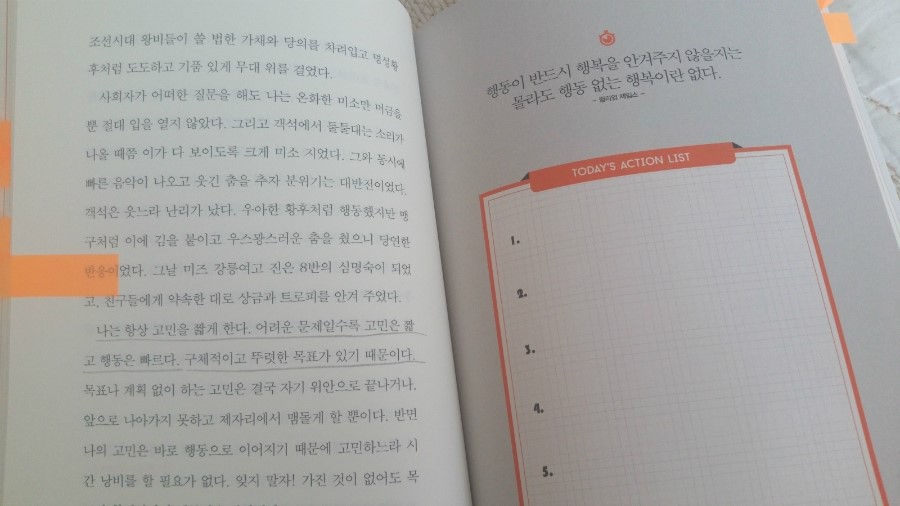 조선시대 왕비들이 쓸 법한 가채와 당의를 차려입고 명성황
후처럼 도도하고 기품 있게 무대 위를 걸었다.
사회자가 어떠한 질문을 해도 나는 온화한 미소만 머금을
뿐 절대 입을 열지 않았다. 그리고 객석에서 툴툴대는 소리가
나올 때쯤 이가 다 보이도록 크게 미소 지었다. 그와 동시에
빠른 음악이 나오고 웃긴 춤을 추자 분위기는 대반전이었다.
객석은 웃느라 난리가 났다. 우아한 황후처럼 행동했지만 맹
구처럼 이에 김을 붙이고 우스꽝스러운 춤을 췄으니 당연한
반응이었다. 그날 미즈 강릉여고 진은 8반의 심명숙이 되었
고, 친구들에게 약속한 대로 상금과 트로피를 안겨 주었다.
나는 항상 고민을 짧게 한다. 어려운 문제일수록 고민은 짧
고 행동은 빠르다. 구체적이고 뚜렷한 목표가 있기 때문이다.
목표나 계획 없이 하는 고민은 결국 자기 위안으로 끝나거나,
앞으로 나아가지 못하고 제자리에서 맴돌게 할 뿐이다. 반면
나의 고민은 바로 행동으로 이어지기 때문에 고민하느라 시
간 낭비를 할 필요가 없다. 잊지 말자! 가진 것이 없어도 목
행동이 반드시 행복을 안겨주지 않을지는
몰라도 행동 없는 행복이란 없다.
- 윌리엄 제임스 -
TODAY'S ACTION LIST
1.
2.
3.
4.
5.